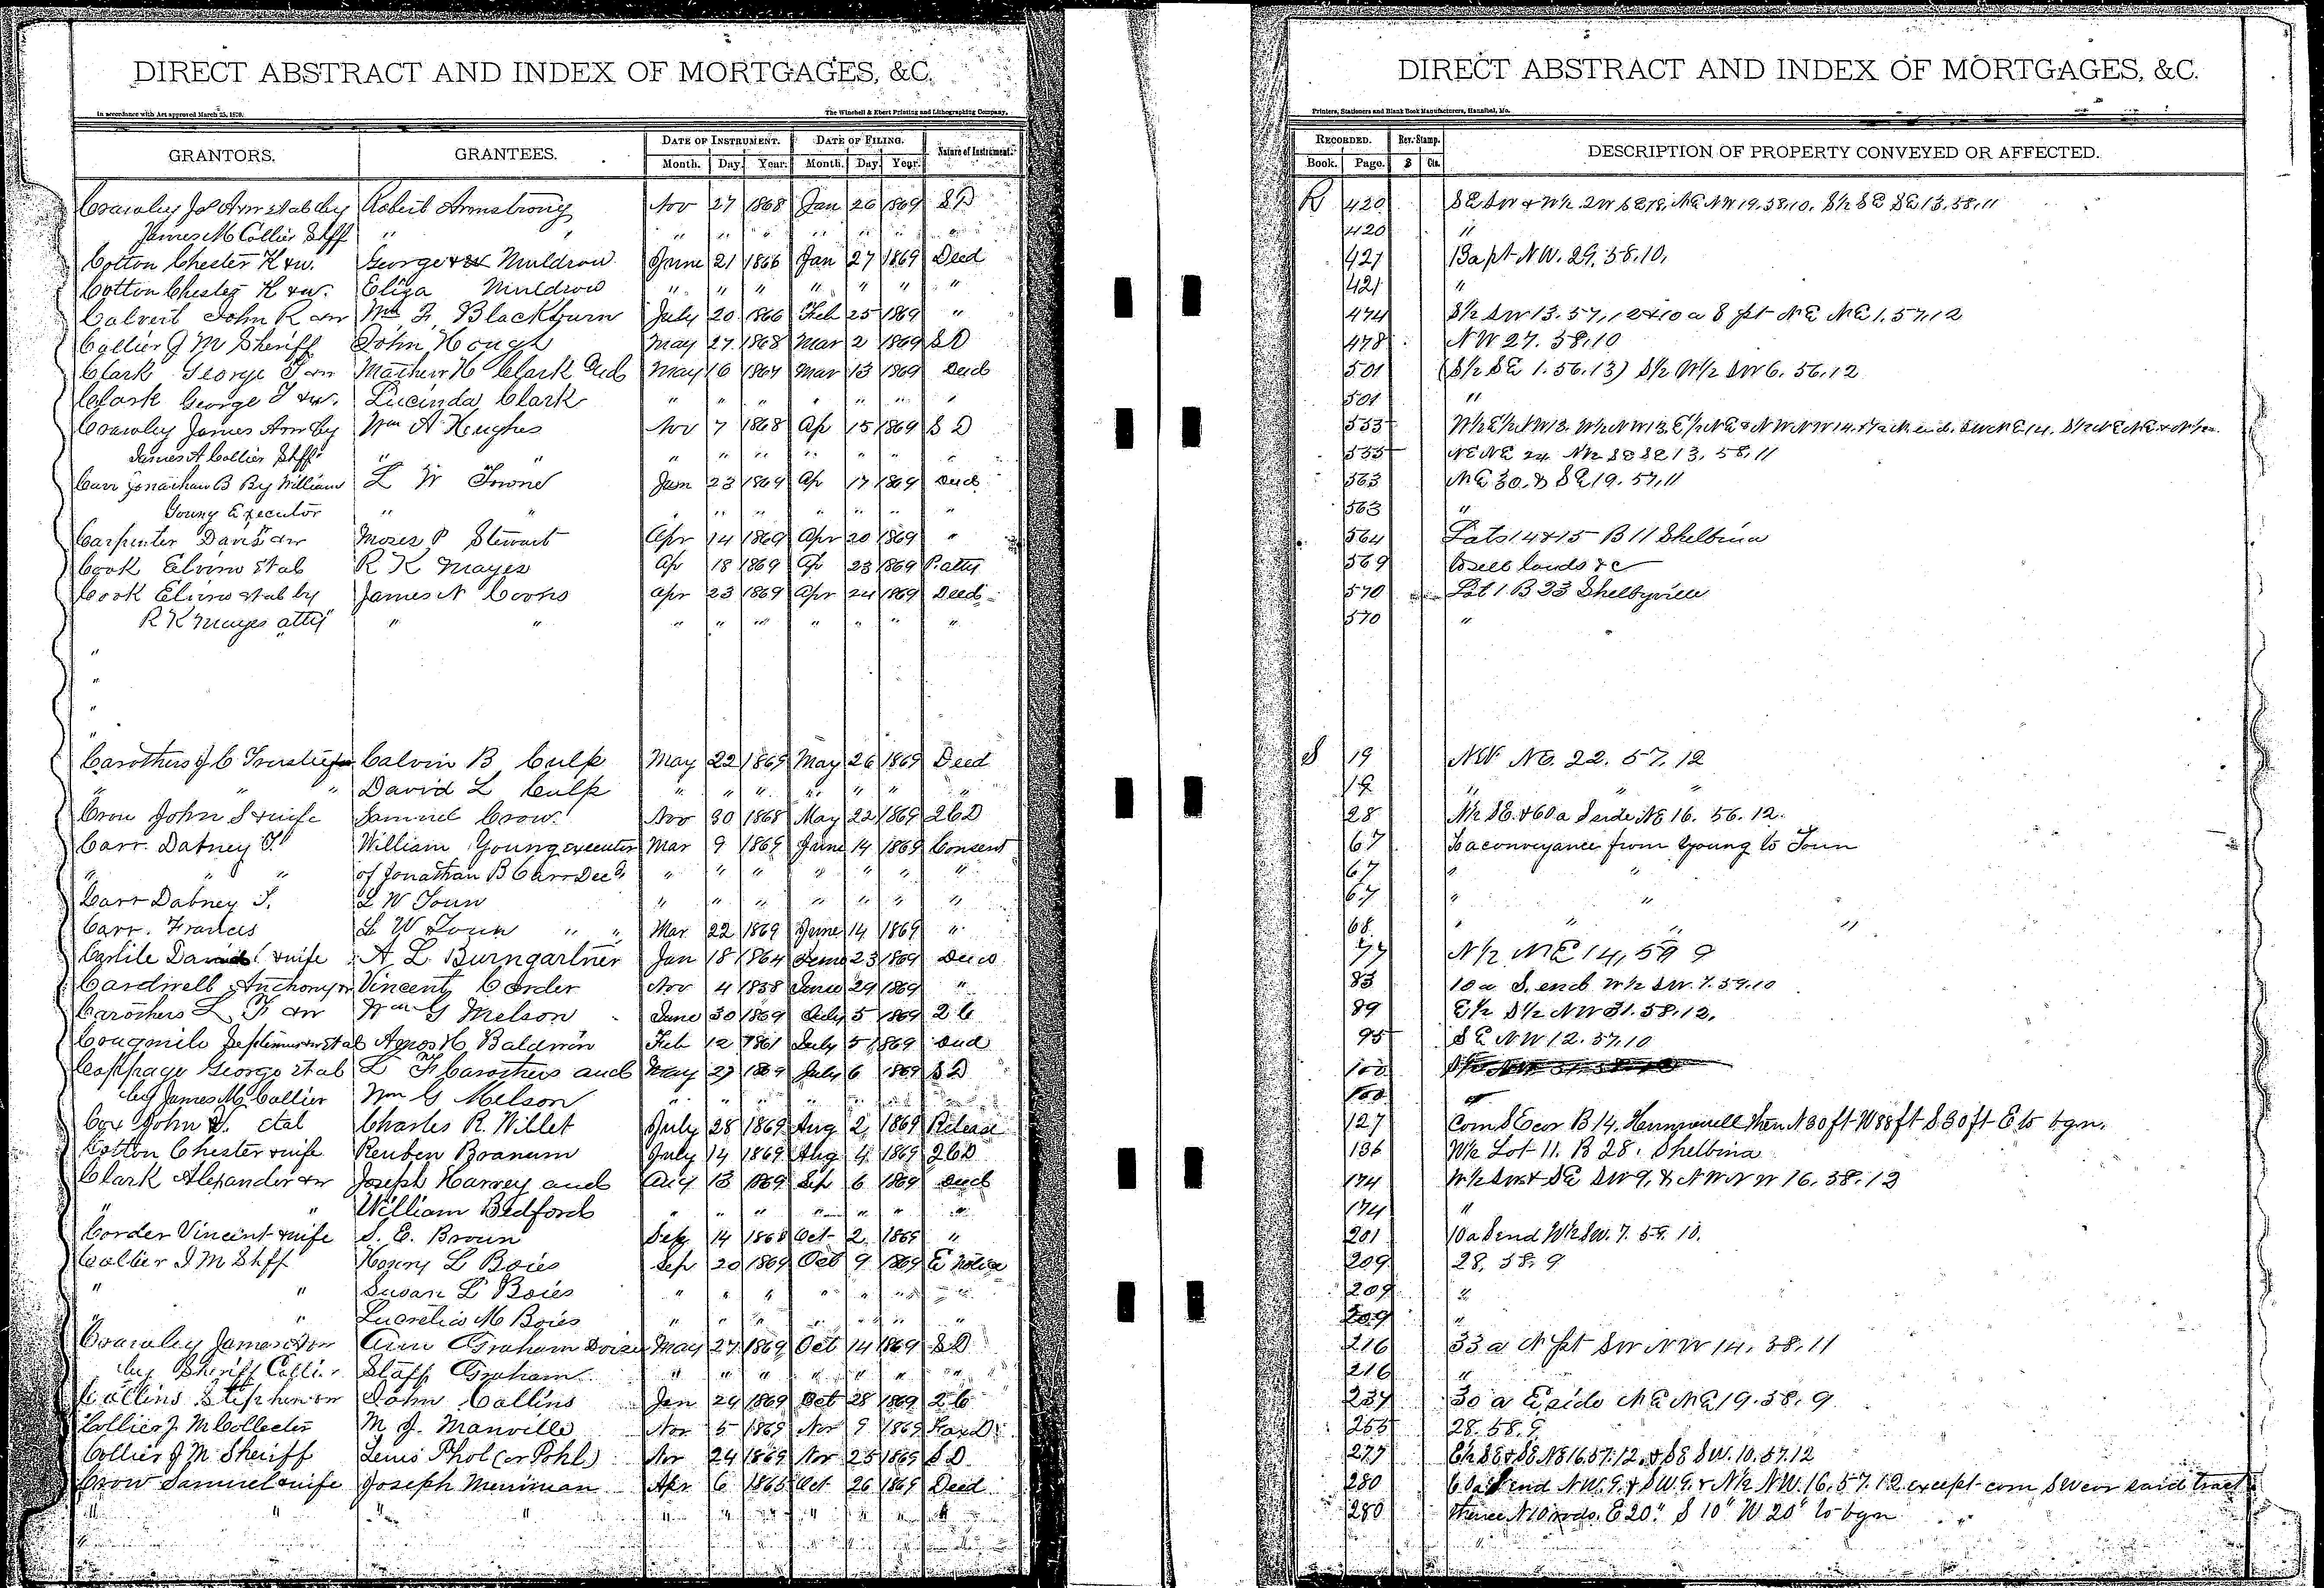 DIRECT ABSTRACT AND INDEX OF MORTGAGES, &C.
In accordance with Act approved March 25, 1876. The Winchell & Ebert Printing and Lithographing Company,
GRANTORS. GRANTEES. DATE OF INSTRUMENT. DATE OF FILING. Nature of Instrument.
Month. Day. Year. Month. Day. Year.
Crawley Jas Arm etal by Robert Armstrong Nov 27 1868 Jan 26 1869 SD
James M Collier Shff " " " " " " " " "
Cotton Chester K &w. George Muldrow June 21 1866 Jan 27 1869 Deed
Cotton Chester K &w. Eliza Muldrow " " " " " " "
Calvert John R &w Wm F. Blackburn July 20 1866 Feb 25 1869 "
Collier J M Sheriff John Hough May 27 1868 Mar 2 1869 SD
Clark George T &w Mathew H Clark and May 16 1864 Mar 13 1869 Deed
Clark George T &w. Lucinda Clark " " " " " " "
Crawley James &w by Wm A Hughes Nov 7 1868 Ap 15 1869 S D
James A Collier Shff " " " " " " " " "
Carr Jonathan B By William L W Towne Jan 23 1869 Ap 17 1869 Deed
Young Executor " " " " " " " " "
Carpenter David &w Moses P Stewart Apr 14 1869 Apr 20 1869 "
Cook Elvira etal R K Mayes Ap 18 1869 Ap 23 1869 P atty
Cook Elvira etal by James N Coons Apr 23 1869 Apr 24 1869 Deed
R K Mayes atty " " " " " " " " "
"
"
"
"
Carothers J C Trustee Calvin B Culp May 22 1869 May 26 1869 Deed
" " " David L Culp " " " " " " "
Crow John S & wife Samuel Crow Nov 30 1868 May 22 1869 2CD
Carr. Dabney T. William Young executor Mar 9 1869 June 14 1869 Consent
" " " of Jonathan B Carr Decd " " " " " " "
Carr Dabney T. L W Toun " " " " " " "
Carr. Frances L W Toun " " Mar 22 1869 June 14 1869 "
Carlile David C & wife A L Bumgartner Jan 18 1864 June 23 1869 Deed
Cardwell Anthony &w Vincent Corder Nov 4 1858 June 29 1869 "
Carothers L F &w Wm G Melson June 30 1869 July 5 1869 2C
Cougmile Septimus &w etal Agnes H Baldwin Feb 12 1861 July 5 1869 Deed
Coppage George etal L F Carothers and May 27 1869 July 6 1869 SD
by James M Collier Wm G Melson " " " " " " "
Cox John H. etal Charles R. Willet July 28 1869 Aug 2 1869 Release
Cotton Chester & wife Reuben Branum July 14 1869 Aug 4 1869 2CD
Clark Alexander &w Joseph Harvey and Aug 13 1869 Sep 6 1869 Deed
" " William Bedford " " " " " " "
Corder Vincent & wife S. E. Broun Sep 14 1868 Oct 2 1869 "
Collier J M Shff Henry L Boies Sep 20 1869 Oct 9 1869 E Notice
" " Susan L Boies " " " " " " "
" " Lucretia M Boies " " " " " " "
Crawley James &w Ann Graham May 27 1869 Oct 14 1869 SD
by Sheriff Collier Stapp Graham " " " " " " "
Collins Stephen &w John Collins Jan 29 1869 Oct 28 1869 2C
Collier J. M Collector M J. Manville Nov 5 1869 Nov 9 1869 Tax D
Collier J M Sheriff Lewis Phol (or Pohl) Nov 24 1869 Nov 25 1869 SD
Crow Samuel & wife Joseph Merriman Apr 6 1865 Oct 26 1869 Deed
" " " " " " " " " " "
DIRECT ABSTRACT AND INDEX OF MORTGAGES, &C.
Printers, Stationers and Blank Book Manufacturers, Hannibal, Mo.
RECORDED. Rev. Stamp. DESCRIPTION OF PROPERTY CONVEYED OR AFFECTED.
Book. Page. $ Cts.
R 420 SE SW & W½ SW SE 18, NE NW 19. 58. 10, S½ SE SE 13. 58. 11
420 "
421 13a pt NW. 29. 58. 10,
421 "
474 S½ SW 13. 57, 12 & 10 a 8 pt NE NE 1. 57. 12
478 NW 27. 58. 10
501 (S½ SE 1. 56. 13) S½ W½ SW 6. 56. 12
501 "
553 W½ E½ NW 13. W½ NW 13, E½ NE & NW NW 14.
555 NE NE 24 N½ SE SE 13, 58, 11
563 NE 30. & SE 19. 57. 11
563 "
564 Lots 14 & 15 B 11 Shelbina
569 to sell lands &c
570 Lot 1 B 23 Shelbyville
570 "
S 19 NW NE. 22. 57. 12
19 " "
28 N½ SE. & 60 a S side NE 16. 56. 12.
67 To a conveyance from Young to Toun
67 " "
67 " "
68 " " " "
77 N½ NE 14, 59 9
83 10 a S. end W½ SW. 7. 59. 10
89 E½ S½ NW 31. 58. 12.
95 SE NW 12. 57. 10
100
100 "
127 Com SE cor B 14. Hunnewell then N 30 ft W 88 ft S 30 ft E to bgn.
136 W½ Lot 11. B 28. Shelbina
174 W½ SW & SE SW 9, & NW NW 16. 58. 12
174 "
201 10 a S end W½ SW. 7. 59. 10.
209 28. 58. 9
209 "
209 "
216 33 a N pt SW NW 14. 58. 11
216 "
237 30 a E side NE NE 19. 58. 9
255 28. 58. 9
277 E½ SE & SE NE 16. 57. 12. & SE SW. 10. 57. 12
280 60 a S end NW. 9. & SW. 9. & N½ NW. 16. 57. 12 except com SW cor said tract
280 thence N 10 rods. E 20" S 10" W 20" to bgn